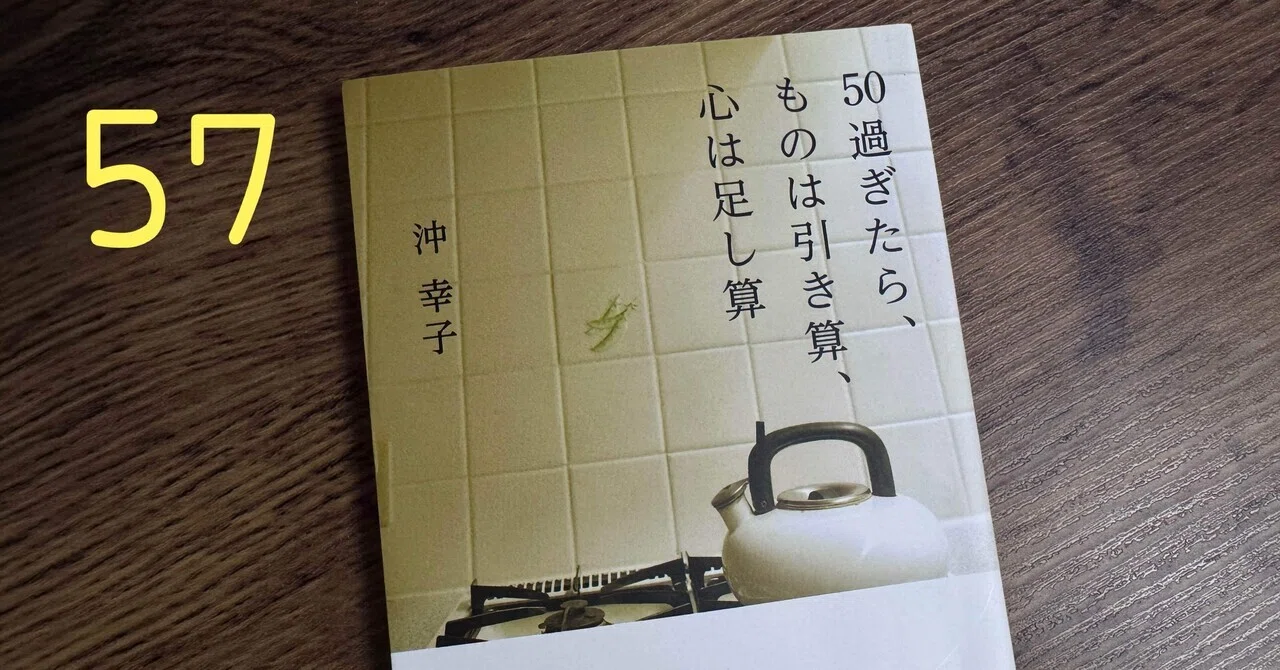 57
50過ぎたら、
ものは引き算、
心は足し算
沖 幸子